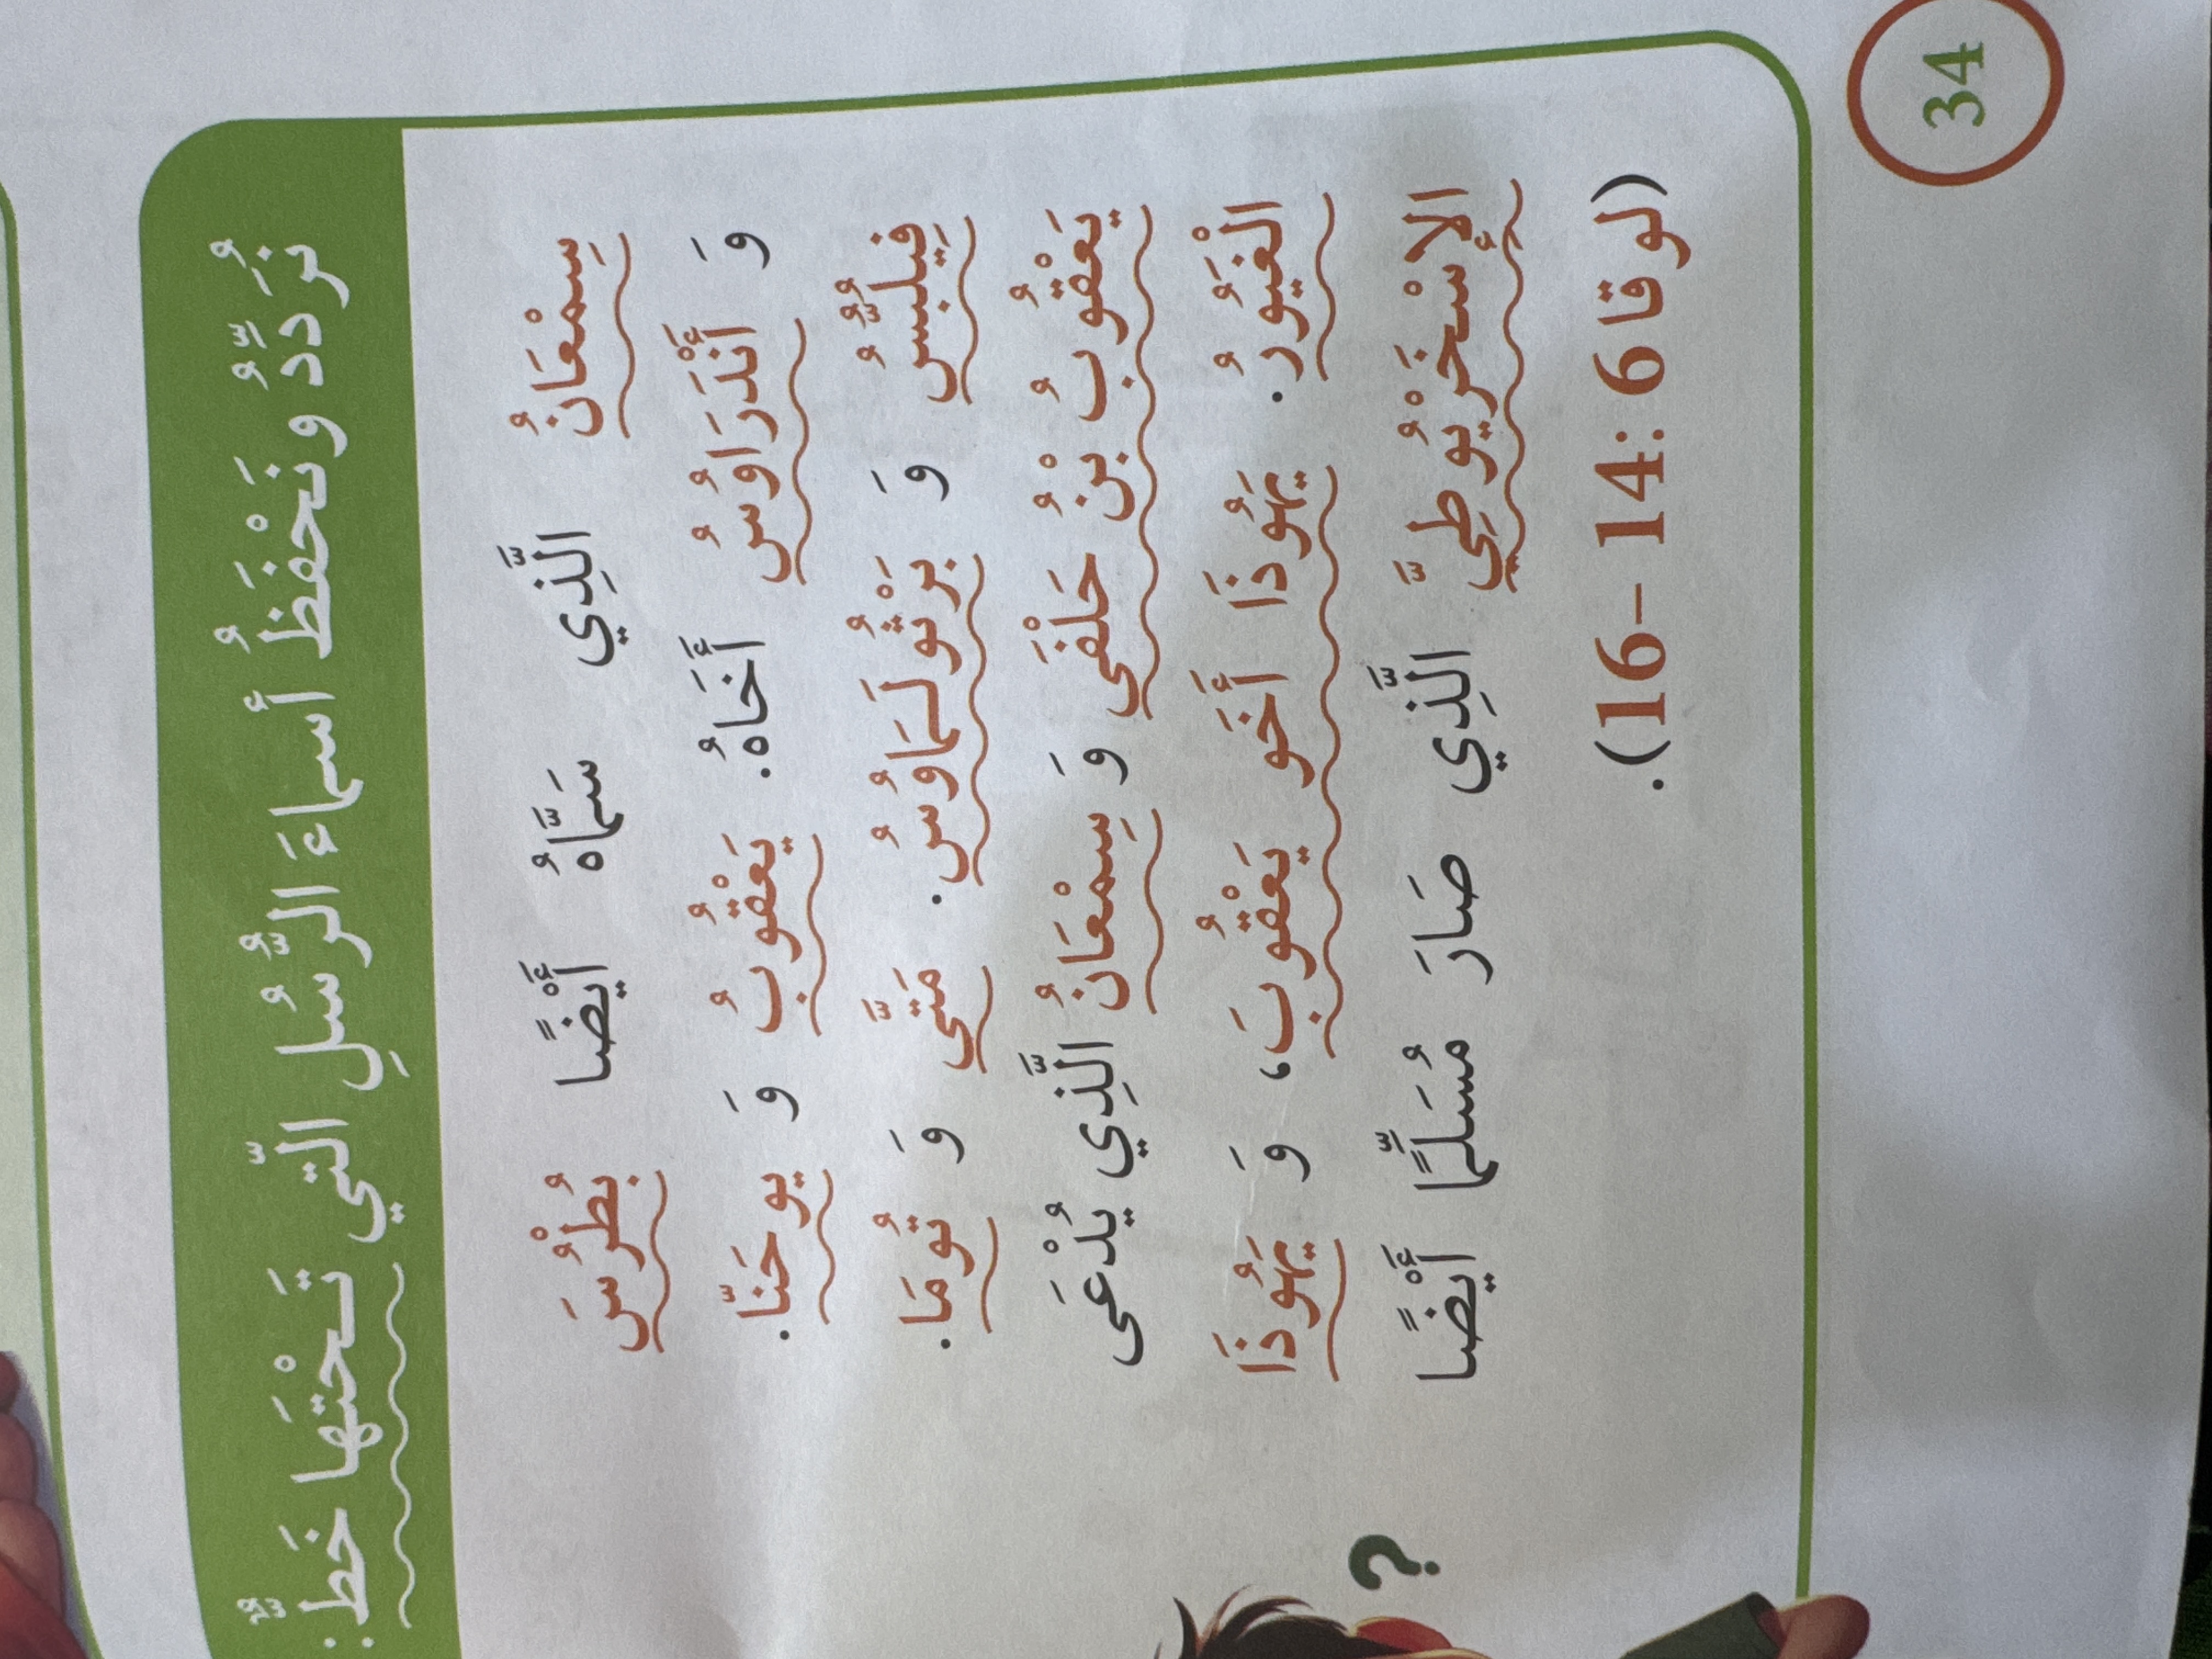 نُرَدِّدُ ونَحْفَظُ أسماءَ الرُّسُلِ الّتي تَحْتَهَا خَطٌّ:
سِمْعَانُ الَّذِي سَمَّاهُ أَيْضًا بُطْرُسَ
وَ أَنْدَرَاوُسُ أَخَاهُ. يَعْقُوبُ وَ يوحَنّا.
فِيلُبُّسُ وَ بَرْثُولَمَاوُسُ. مَتّى وَ تُومَا.
يَعْقُوبُ بْنُ حَلْفَى وَ سِمْعَانُ الَّذِي يُدْعَى
الْغَيُورُ. يَهُوذَا أَخَو يَعْقُوبَ، وَ يَهُوذَا
الإِسْخَرْيُوطِيَّ الَّذِي صَارَ مُسَلِّمًا أَيْضًا
(لوقا 6 :14 -16).
?
34